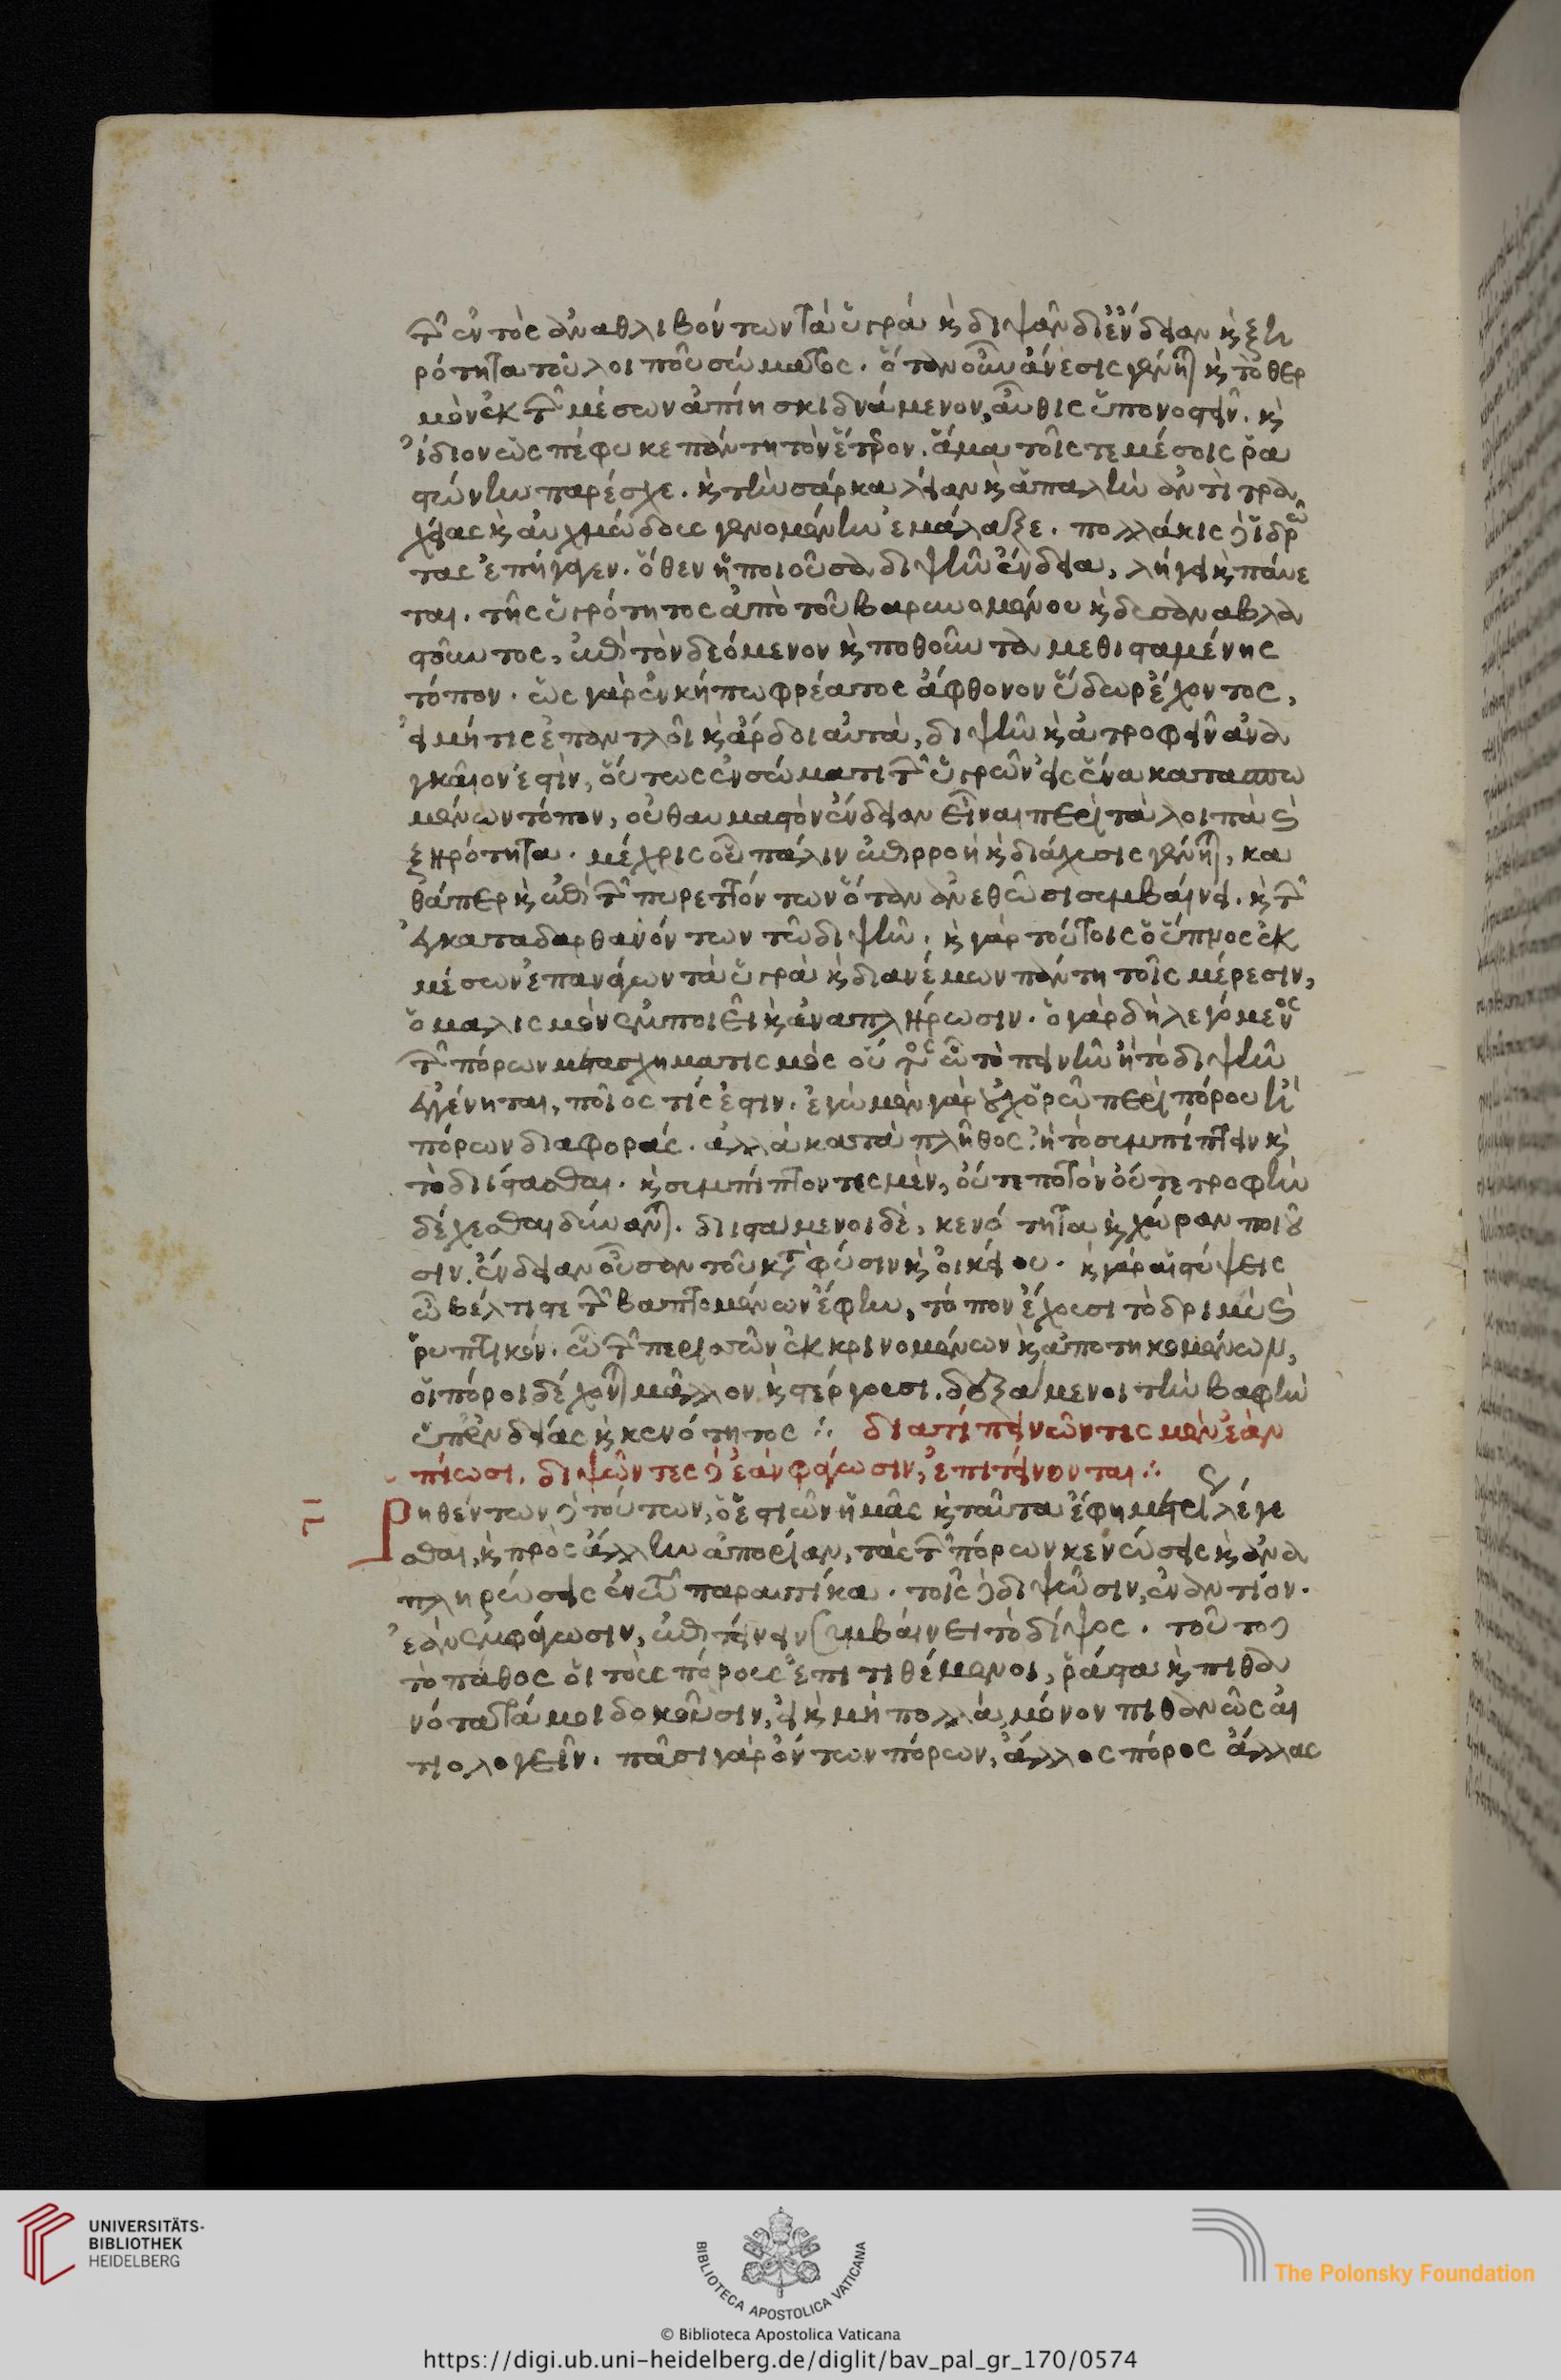 τῶν ἐντὸς ἀναθλιβόντων τὰ ὑγρά καὶ διψᾶν δι ἔνδειαν καὶ ξη
ρότητα τοῦ λοιποῦ σώματος. ὅταν οὖν ἄνεσις γένηται καὶ τὸ θερ
μὸν ἐκ τῶν μέσων ἀπίη σκιδνάμενον, αὖθις ὑπονοστεῖν. καὶ
ἴδιον ὡς πέφυκε πάντη τὸν ἕτερον. ἅμα τοῖς τε μέσοις ῥα
στώνην παρέσχε. καὶ τὴν σάρκα λείαν καὶ ἁπαλὴν ἀντὶ τρα
χείας καὶ αὐχμώδους γενομένην ἐμάλαξε. πολλάκις δὲ ἱδρῶ
τας ἐπήγαγεν. ὅθεν ἡ ποιοῦσα διψῆν ἔνδεια, λήγει καὶ παύε
ται. τῆς ὑγρότητος ἀπὸ τοῦ βαρυνομένου καὶ δυσαναβλα
στοῦντος, ἐπὶ τὸν δεόμενον καὶ ποθοῦντα μεθισταμένης
τόπον. ὡς γὰρ ἐν κήπω φρέατος ἄφθονον ὕδωρ ἔχοντος,
εἰ μή τις ἐπαντλοῖ καὶ ἄρδοι αὐτὰ, διψῆν καὶ ἀτροφεῖν ἀνα
γκαῖον ἐστὶν, οὕτως ἐν σώματι τῶν ὑγρῶν εἰς ἕνα κατασπω
μένων τόπον, οὐ θαυμαστὸν ἔνδειαν εἶναι περὶ τὰ λοιπὰ καὶ
ξηρότητα. μέχρις οὗ πάλιν ἐπιρροὴ καὶ διάχυσις γένηται, κα
θάπερ καὶ ἐπὶ τῶν πυρεττόντων ὅταν ἀνεθῶσι συμβαίνει. καὶ τῶν
ἐγκαταδαρθανόντων τῶ διψῆν. καὶ γὰρ τούτοις ὁ ὕπνος ἐκ
μέσων ἐπανάγων τὰ ὑγρὰ καὶ διανέμων πάντη τοῖς μέρεσιν,
ὁμαλισμὸν ἐμποιεῖ καὶ ἀναπλήρωσιν. ὁ γὰρ δὴ λεγόμενος
τῶν πόρων μετασχηματισμὸς οὗτος ὧ τὸ πεινῆν ἢ τὸ διψῆν
ἐγγένηται, ποῖος τίς ἐστιν. ἐγὼ μὲν γὰρ οὐχ ὁρῶ περὶ πόρου ἢ
πόρων διαφοράς. ἀλλὰ κατὰ πλῆθος ἢ τὸ συμπίπτειν καὶ
τὸ διίστασθαι. καὶ συμπίπτοντες μὲν, οὔτε ποτὸν οὔτε τροφὴν
δέχεσθαι δύνανται. διισταμενοι δὲ, κενότητα καὶ χώραν ποιοῦ
σιν. ἔνδειαν οὖσαν τοῦ κατὰ φύσιν καὶ οἰκείου. καὶ γὰρ αἱ στύψεις
ὦ βέλτιστε τῶν βαπτομένων ἔφην, τόπον ἔχουσι τὸ δριμὺ καὶ
ῥυπτικόν. ὧ τῶν περισσῶν ἐκκρινομένων καὶ ἀποτηκομένων,
οἱ πόροι δέχονται μᾶλλον καὶ στέργουσι. δεξάμενοι τὴν βαφὴν
ὑπ ἐνδείας καὶ κενότητος ∴ διατί πεινῶντες μὲν ἐὰν
πίωσι. διψῶντες δὲ ἐὰν φάγωσιν, ἐπιτείνονται ∴
Ρηθέντων δὲ τούτων, ὁ ἑστιῶν ἡμᾶς καὶ ταῦτα ἔφη μετρίως λέγε
σθαι, καὶ πρὸς ἄλλην ἀπορίαν, τὰς τῶν πόρων κενώσεις καὶ ἀνα
πληρώσεις ἐν ὧ παραυτίκα. τοῖς δὲ διψῶσιν, ἐναντίον.
ἐὰν ἐμφάγωσιν, ἐπιτείνειν συμβαίνει τὸ δίψος. τοῦτο δὲ
τὸ πάθος οἱ τοὺς πόρους ἐπιτιθέμενοι, ῥάστα καὶ πιθα
νότατά μοι δοκοῦσιν, εἰ καὶ μὴ πολλὰ, μόνον πιθανῶς αἰ
τιολογεῖν. πᾶσι γὰρ ὄντων πόρων, ἄλλος πόρος ἄλλας
UNIVERSITÄTS-
BIBLIOTHEK
HEIDELBERG
BIBLIOTECA APOSTOLICA VATICANA
The Polonsky Foundation
© Biblioteca Apostolica Vaticana
https://digi.ub.uni-heidelberg.de/diglit/bav_pal_gr_170/0574